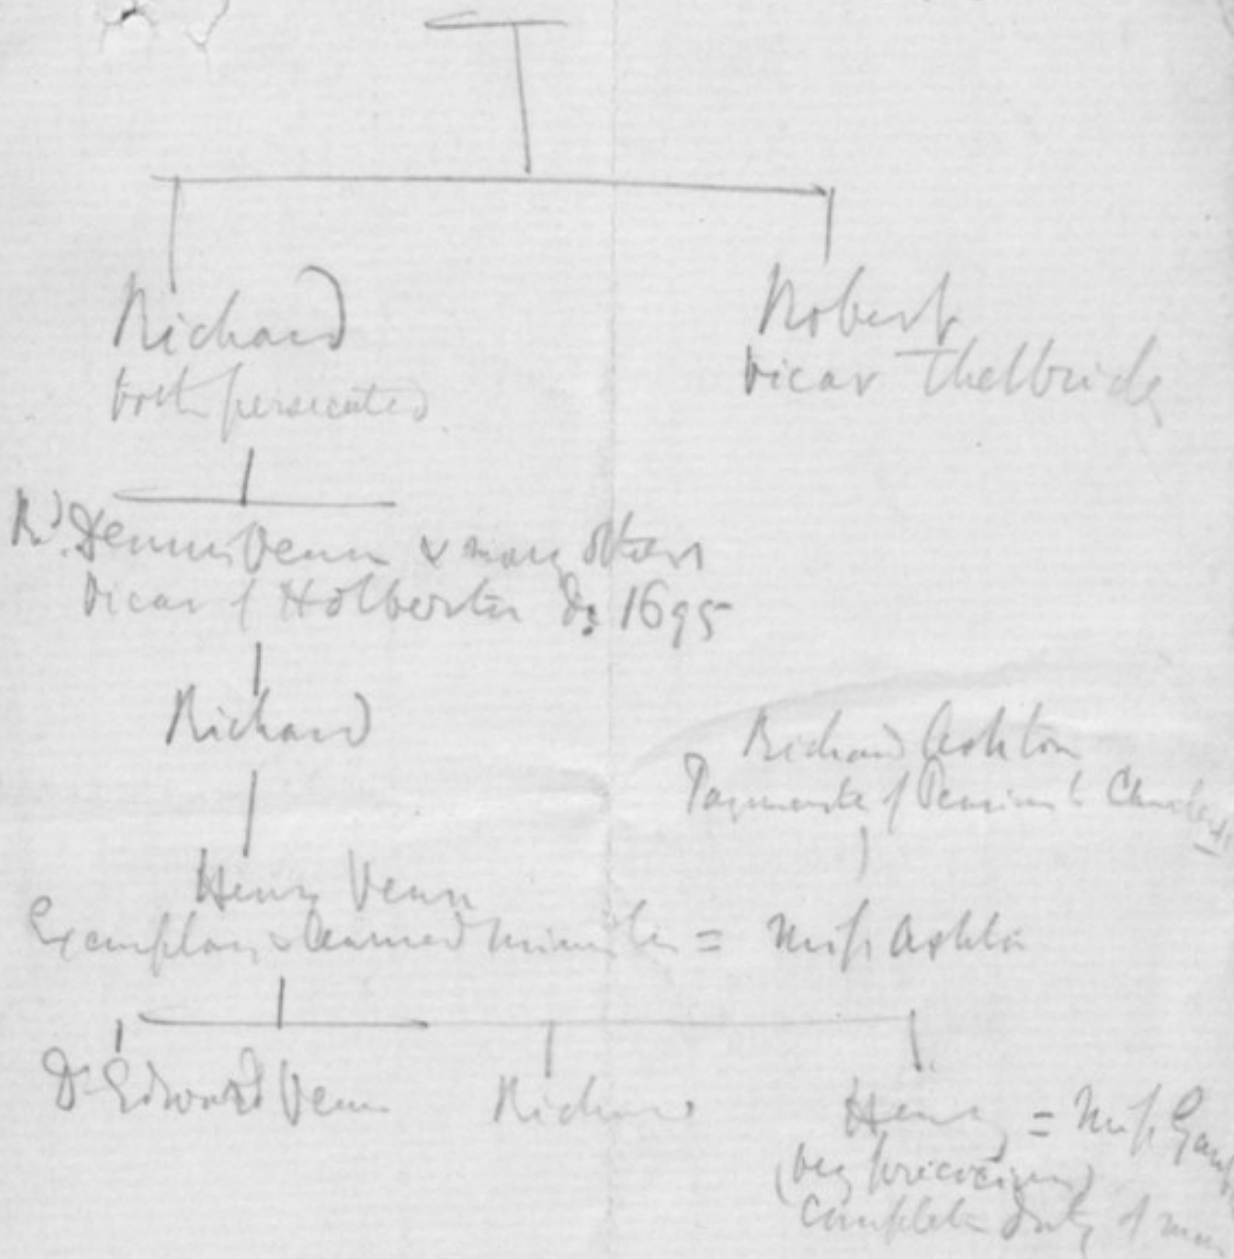 Richard
Robert
both persecuted
vicar Thelbridge
Rd. Dennis Venn & many others
Vicar of Holberton D: 1695
Richard
Richard Ashton
Paymaster of Pensions to
Henry Venn
Exemplary & learned minister = Miss Ashton
Dr Edward Venn
Richard
Henry = Miss
Complete duty of man